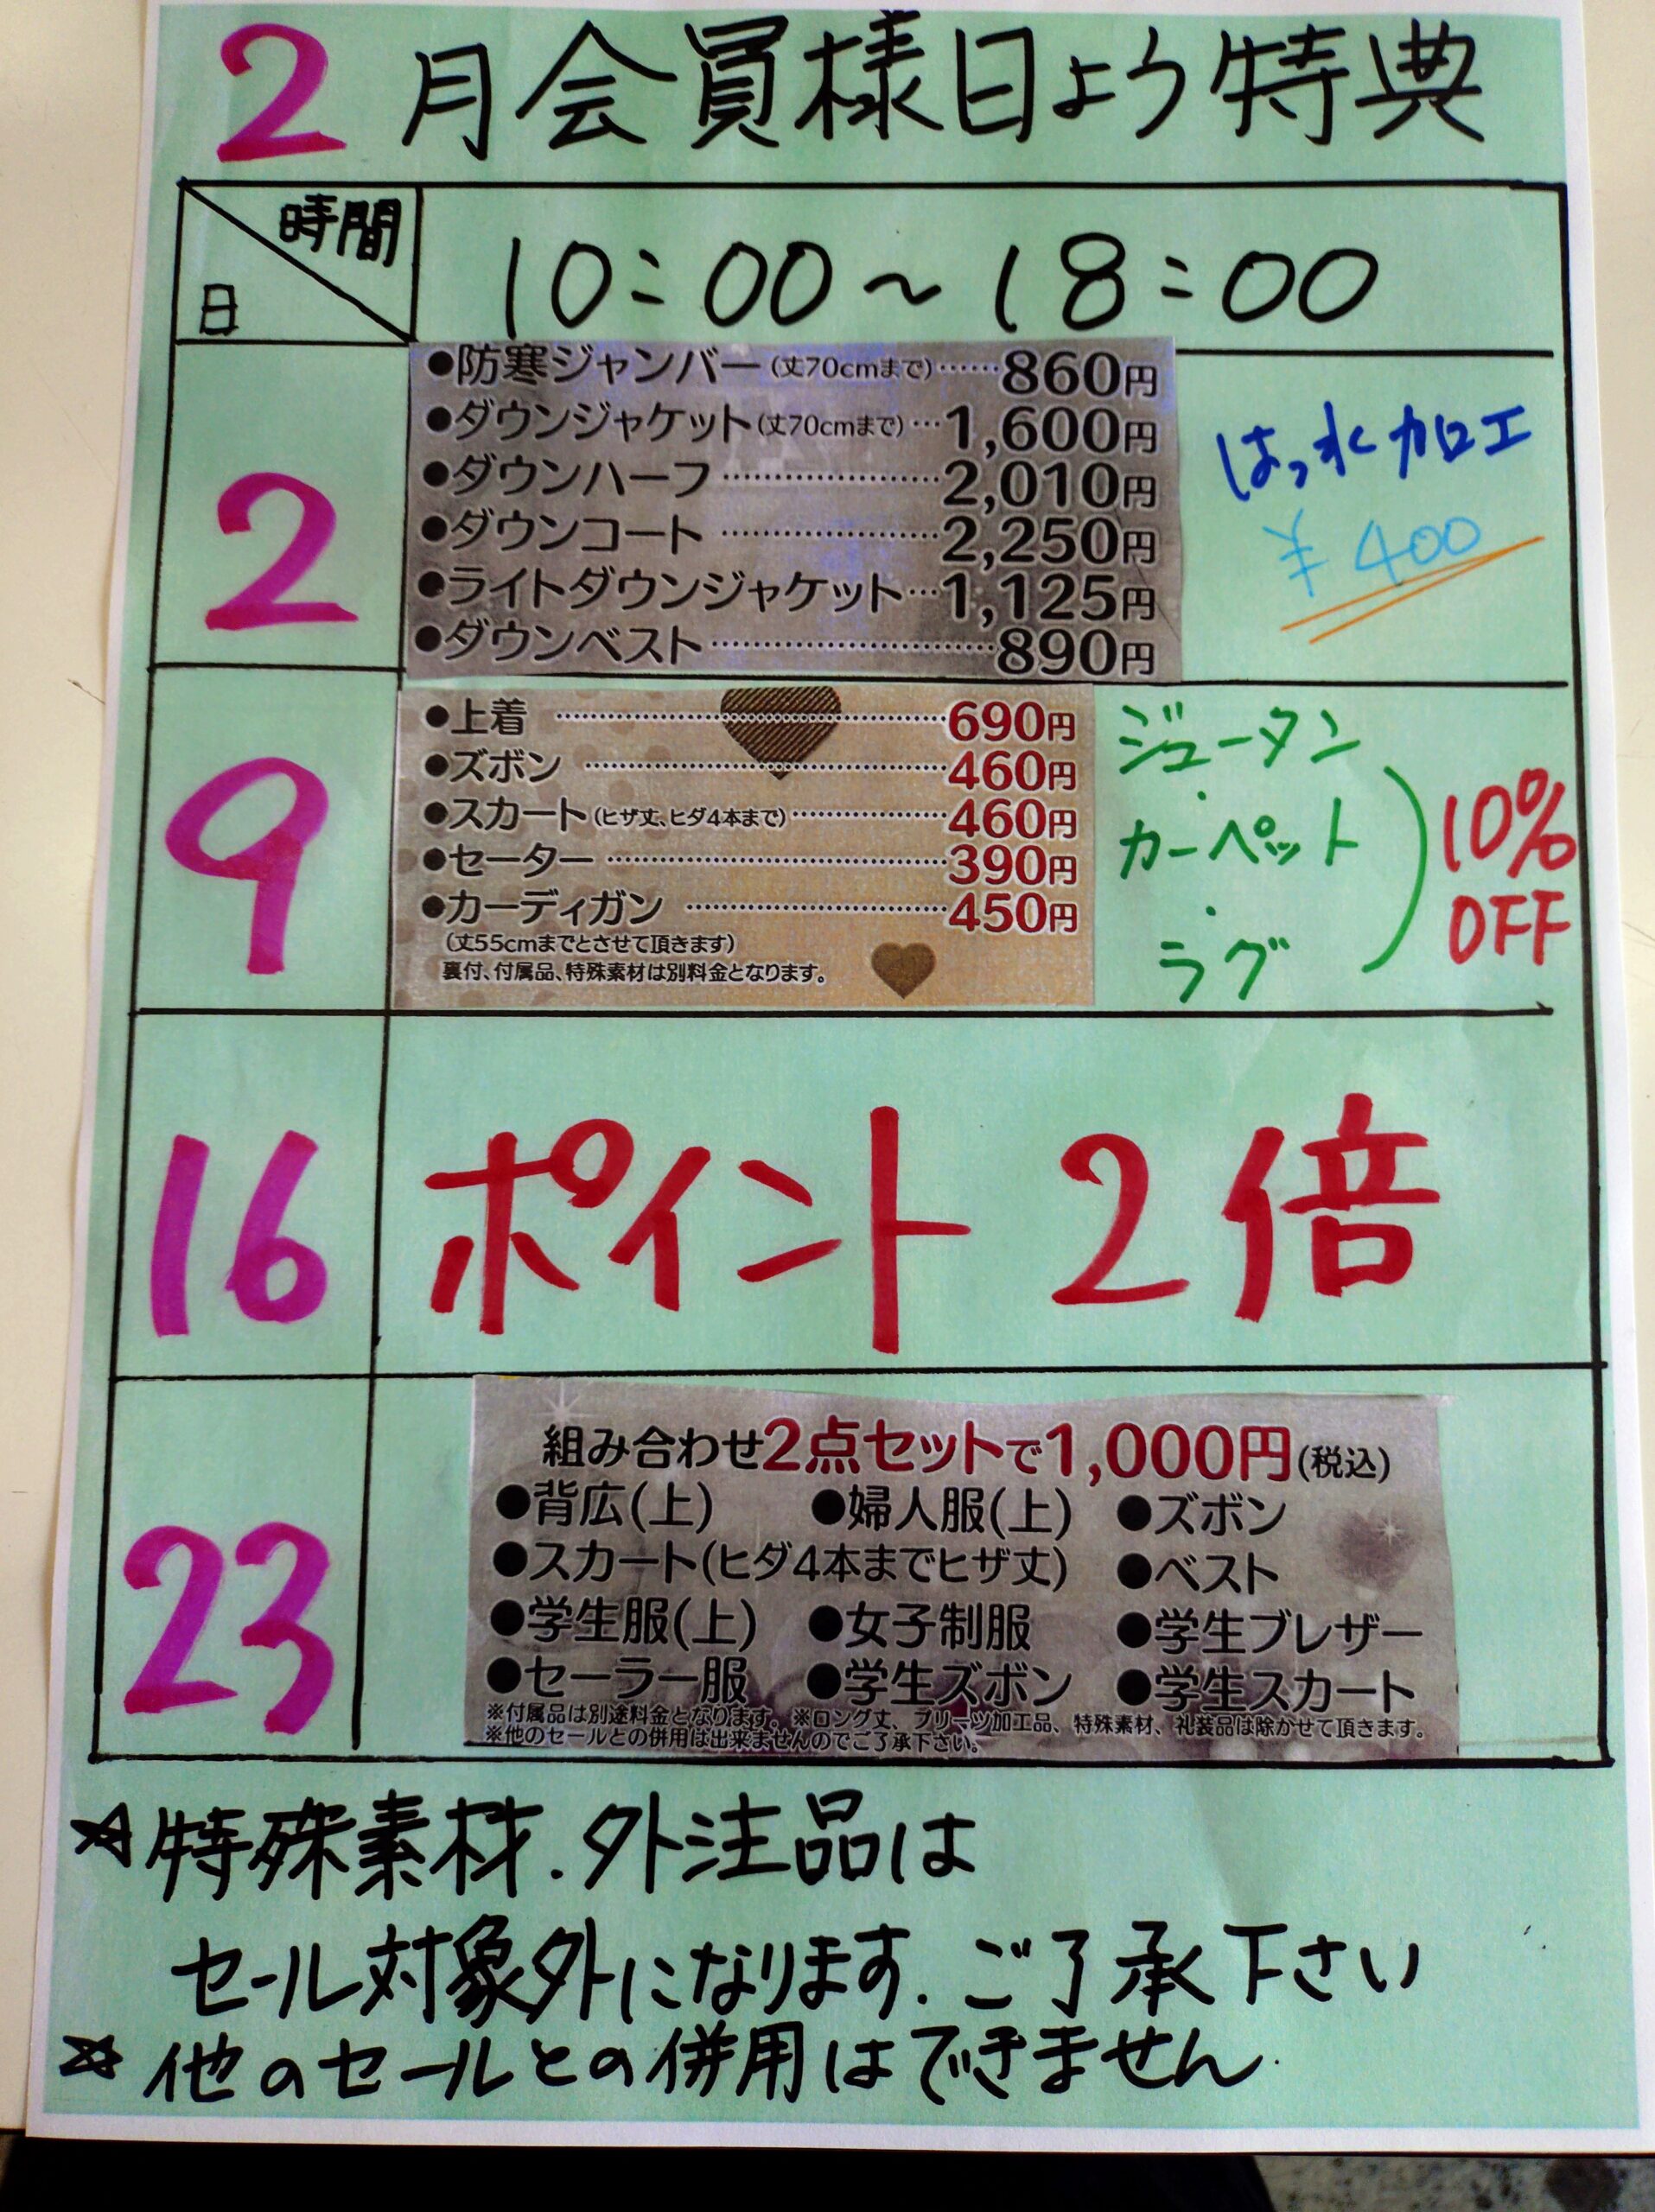 2月会員様日よう特典
時間
日
10:00~18:00
2
●防寒ジャンバー(丈70cmまで)……860円
●ダウンジャケット(丈70cmまで)…1,600円
●ダウンハーフ……………………2,010円
●ダウンコート……………………2,250円
●ライトダウンジャケット…1,125円
●ダウンベスト……………………890円
はっ水加工
¥400
9
●上着……………………690円
●ズボン……………………460円
●スカート(ヒザ丈、ヒダ4本まで)……………460円
●セーター……………………390円
●カーディガン……………………450円
(丈55cmまでとさせて頂きます)
裏付、付属品、特殊素材は別料金となります。
ジュータン
・
カーペット
・
ラグ
10%
OFF
16
ポイント2倍
23
組み合わせ2点セットで1,000円(税込)
●背広(上) ●婦人服(上) ●ズボン
●スカート(ヒダ4本までヒザ丈) ●ベスト
●学生服(上) ●女子制服 ●学生ブレザー
●セーラー服 ●学生ズボン ●学生スカート
※付属品は別途料金となります。※ロング丈、プリーツ加工品、特殊素材、礼装品は除かせて頂きます。
※他のセールとの併用は出来ませんのでご了承下さい。
☆特殊素材.外注品は
セール対象外になります.ご了承下さい
☆他のセールとの併用はできません.